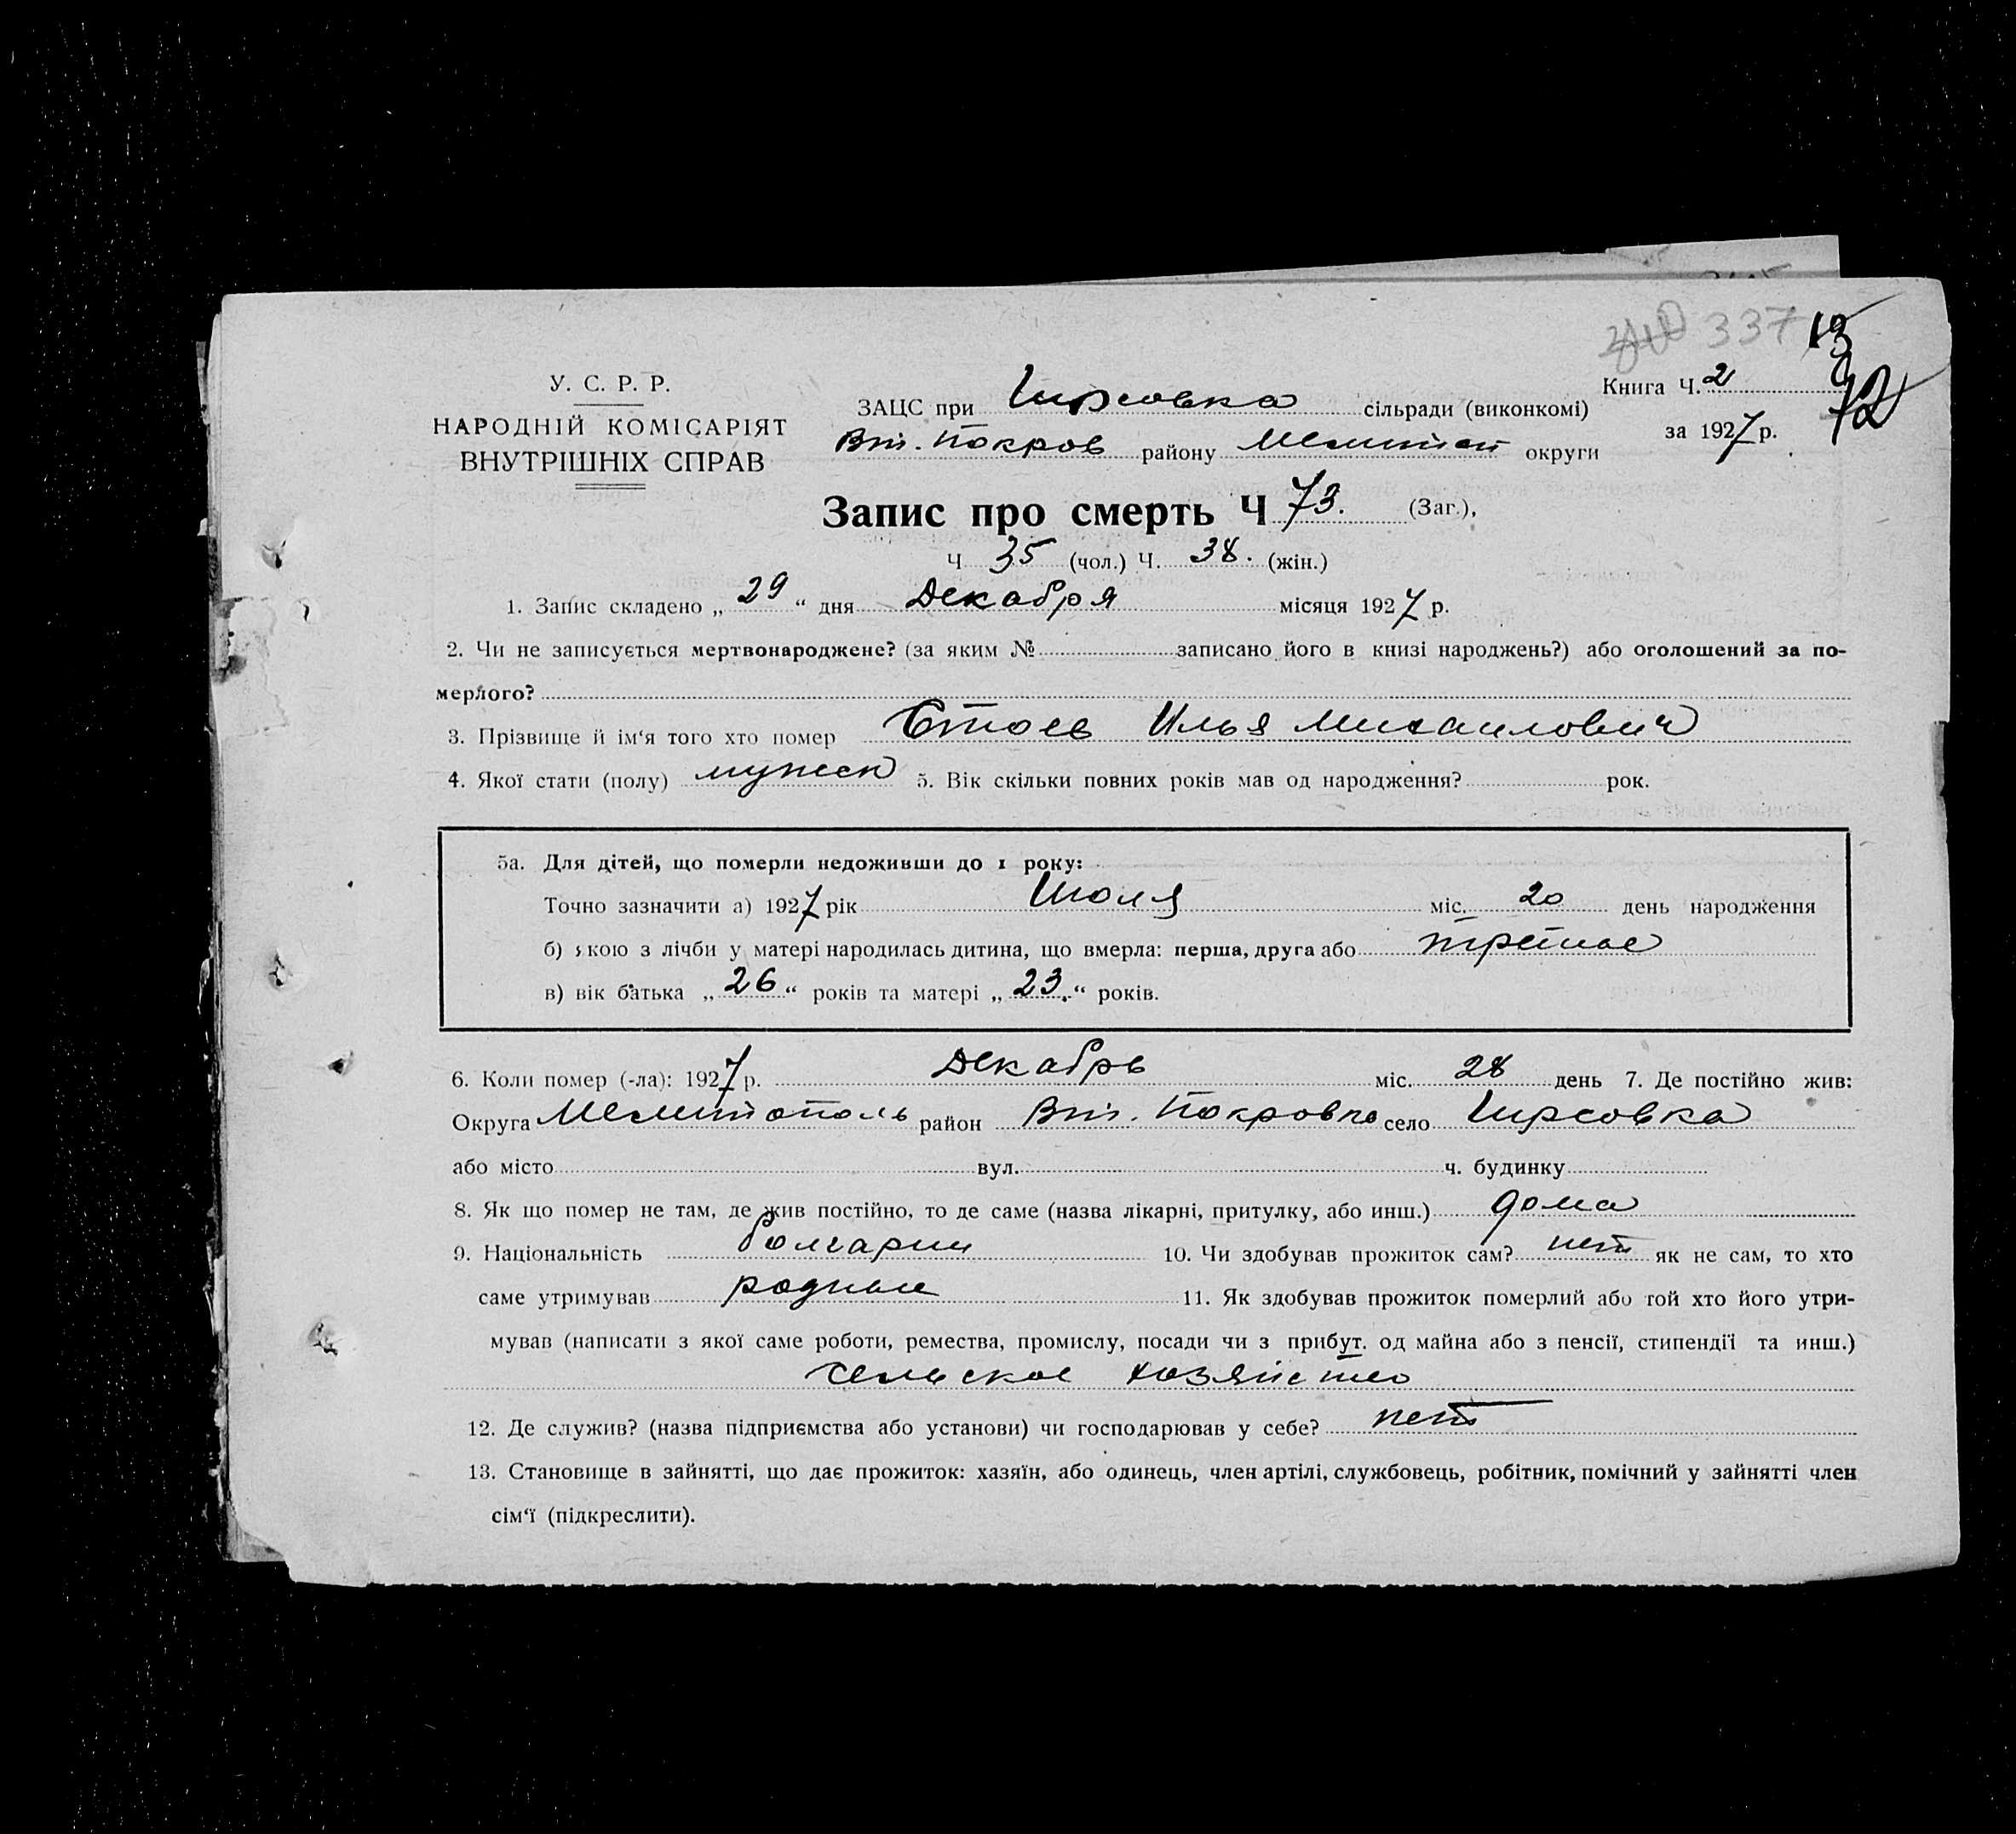 337
13
72
У. С. Р. Р.
НАРОДНІЙ КОМІСАРІЯТ
ВНУТРІШНІХ СПРАВ
ЗАЦС при Гирсовка сільради (виконкомі)
Книга Ч. 2
Вт. Покров району Мелитоп округи
за 1927 р.
Запис про смерть Ч 73. (Заг.),
Ч 35 (чол.) Ч. 38. (жін.)
1. Запис складено „ 29 “ дня Декабря місяця 1927 р.
2. Чи не записується мертвонароджене? (за яким № записано його в книзі народжень?) або оголошений за по-
мерлого?
3. Прізвище й ім‘я того хто помер Стоев Илья Михаилович
4. Якої стати (полу) мужск 5. Вік скільки повних років мав од народження? рок.
5а. Для дітей, що померли недоживши до 1 року:
Точно зазначити а) 1927 рік Июля міс. 20 день народження
б) якою з лічби у матері народилась дитина, що вмерла: перша, друга або третье
в) вік батька „ 26 “ років та матері „ 23. “ років.
6. Коли помер (-ла): 1927 р. Декабрь міс. 28 день 7. Де постійно жив:
Округа Мелитополь район Вт. Покровка село Гирсовка
або місто вул. ч. будинку
8. Як що помер не там, де жив постійно, то де саме (назва лікарні, притулку, або инш.) дома
9. Національність болгарин 10. Чи здобував прожиток сам? нет як не сам, то хто
саме утримував родные 11. Як здобував прожиток померлий або той хто його утри-
мував (написати з якої саме роботи, ремества, промислу, посади чи з прибут. од майна або з пенсії, стипендії та инш.)
сельское хозяйство
12. Де служив? (назва підприємства або установи) чи господарював у себе? нет
13. Становище в зайнятті, що дає прожиток: хазяїн, або одинець, член артілі, службовець, робітник, помічний у зайнятті член
сім‘ї (підкреслити).